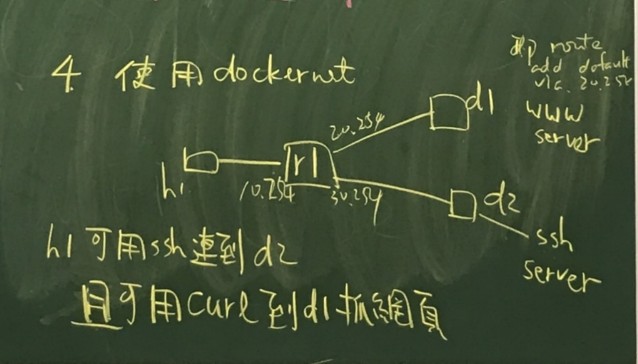 4. 使用dockernet
ip route
add default
via 20.254
www
server
d1
20.254
h1
r1
10.254
30.254
d2
ssh
server
h1可用ssh連到d2
且可用curl到d1抓網頁